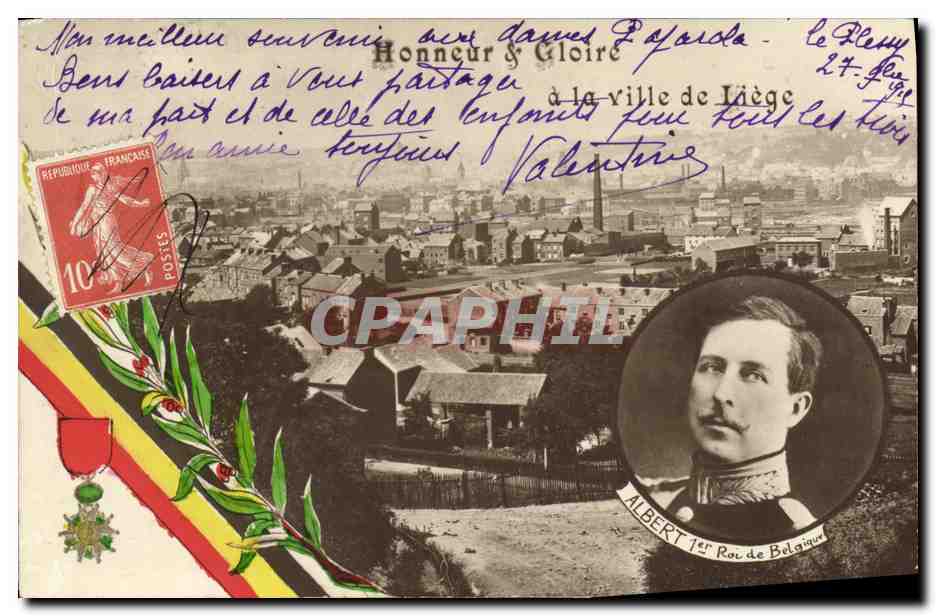 Mon meilleur souvenir aux dames
le Plessy
Honneur & Gloire
27
Bons baisers à vous partager
à la ville de Liège
de ma part et de celle des enfants pour tous les trois
amie toujours Valentine
REPUBLIQUE FRANÇAISE
10c
POSTES
CPAPHIL
ALBERT 1er Roi de Belgique